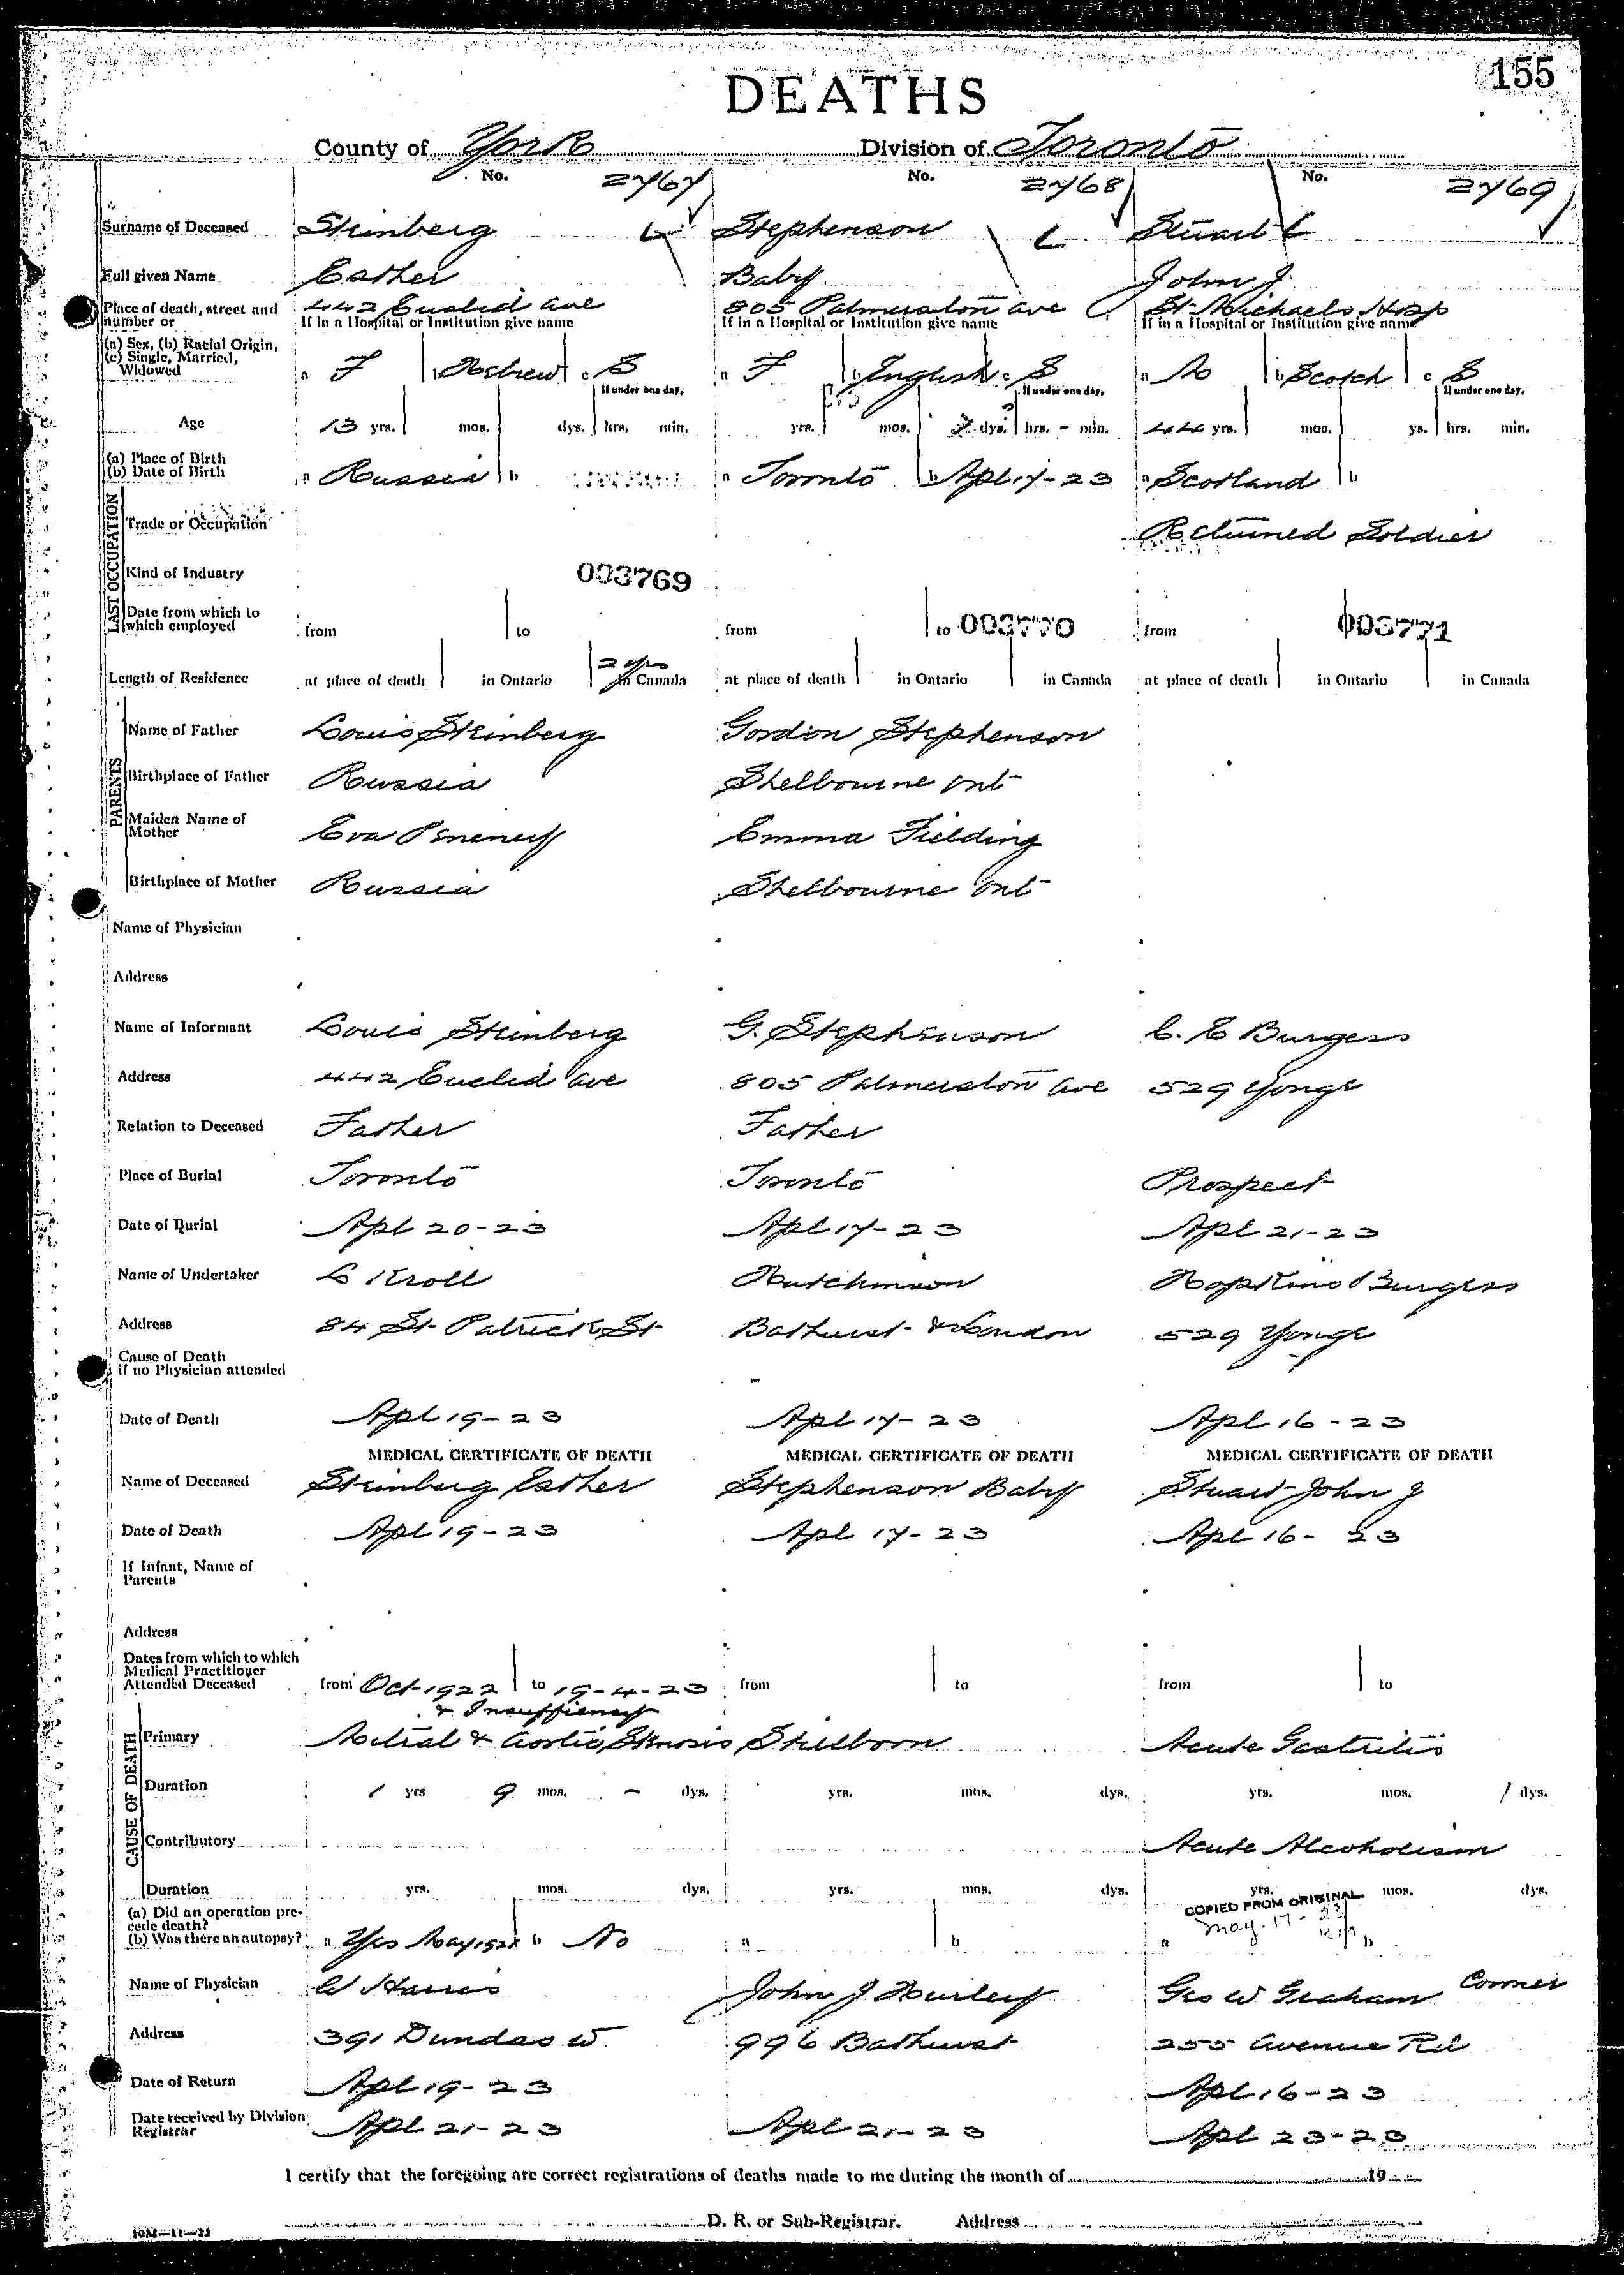 155
DEATHS
County of York Division of Toronto
No. 2767 No. 2768 No. 2769
Surname of Deceased Steinberg L Stephenson L Stuart L
Full given Name Esther Baby John J.
Place of death, street and number or 442 Euclid ave 805 Palmerston ave St. Michaels Hosp
If in a Hospital or Institution give name If in a Hospital or Institution give name If in a Hospital or Institution give name
(a) Sex, (b) Racial Origin, (c) Single, Married, Widowed a F b Hebrew c S a F b English c S a M b Scotch c S
If under one day, If under one day, If under one day,
Age 13 yrs. mos. dys. hrs. min. yrs. mos. dys. hrs. - min. 44 yrs. mos. ys. hrs. min.
(a) Place of Birth (b) Date of Birth a Russia b a Toronto b Apl 17-23 a Scotland b
LAST OCCUPATION
Trade or Occupation Returned Soldier
Kind of Industry 003769
Date from which to which employed from to from to 003770 from 003771
Length of Residence at place of death in Ontario 2 yrs in Canada at place of death in Ontario in Canada at place of death in Ontario in Canada
PARENTS
Name of Father Louis Steinberg Gordon Stephenson
Birthplace of Father Russia Shelbourne Ont
Maiden Name of Mother Eva Emma Fielding
Birthplace of Mother Russia Shelbourne Ont
Name of Physician
Address
Name of Informant Louis Steinberg G. Stephenson C. E Burgess
Address 442 Euclid ave 805 Palmerston ave 529 Yonge
Relation to Deceased Father Father
Place of Burial Toronto Toronto Prospect
Date of Burial Apl 20-23 Apl 17-23 Apl 21-23
Name of Undertaker L Kroll Hutchinson Hopkins Burgess
Address 84 St Patrick St Bathurst & London 529 Yonge
Cause of Death if no Physician attended
Date of Death Apl 19-23 Apl 17-23 Apl 16-23
MEDICAL CERTIFICATE OF DEATH MEDICAL CERTIFICATE OF DEATH MEDICAL CERTIFICATE OF DEATH
Name of Deceased Steinberg Esther Stephenson Baby Stuart John J
Date of Death Apl 19-23 Apl 17-23 Apl 16-23
If Infant, Name of Parents
Address
Dates from which to which Medical Practitioner Attended Deceased from Oct 1922 to 19-4-23 from to from to
CAUSE OF DEATH
& Insufficiency
Primary Mitral & Aortic Stenosis Stillborn Acute Gastritis
Duration 1 yrs 9 mos. - dys. yrs. mos. dys. yrs. mos. 1 dys.
Contributory Acute Alcoholism
Duration yrs. mos. dys. yrs. mos. dys. yrs. mos. dys.
COPIED FROM ORIGINAL
May. 17-23
(a) Did an operation precede death? (b) Was there an autopsy? a Yes May 1922 b No a b a b
Name of Physician W Harris John J Hurley Geo W Graham Coroner
Address 391 Dundas W 996 Bathurst 255 Avenue Rd
Date of Return Apl 19-23 Apl 16-23
Date received by Division Registrar Apl 21-23 Apl 21-23 Apl 23-23
I certify that the foregoing are correct registrations of deaths made to me during the month of 19
D. R. or Sub-Registrar. Address
10M—11—22